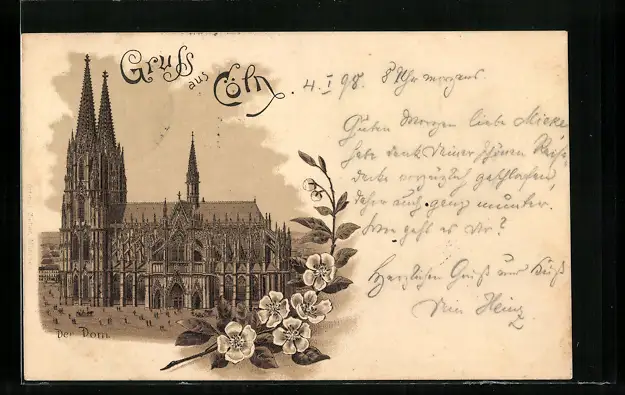 Gruss
aus
Cöln.
4. I 98. 8 Uhr morgens
Guten Morgen liebe Mieke,
habe dank deiner schönen Reise
vorzüglich geschlafen,
daher auch ganz munter.
geht es dir?
Herzlichen Gruß und Kuß
Dein Heinz
Der Dom.